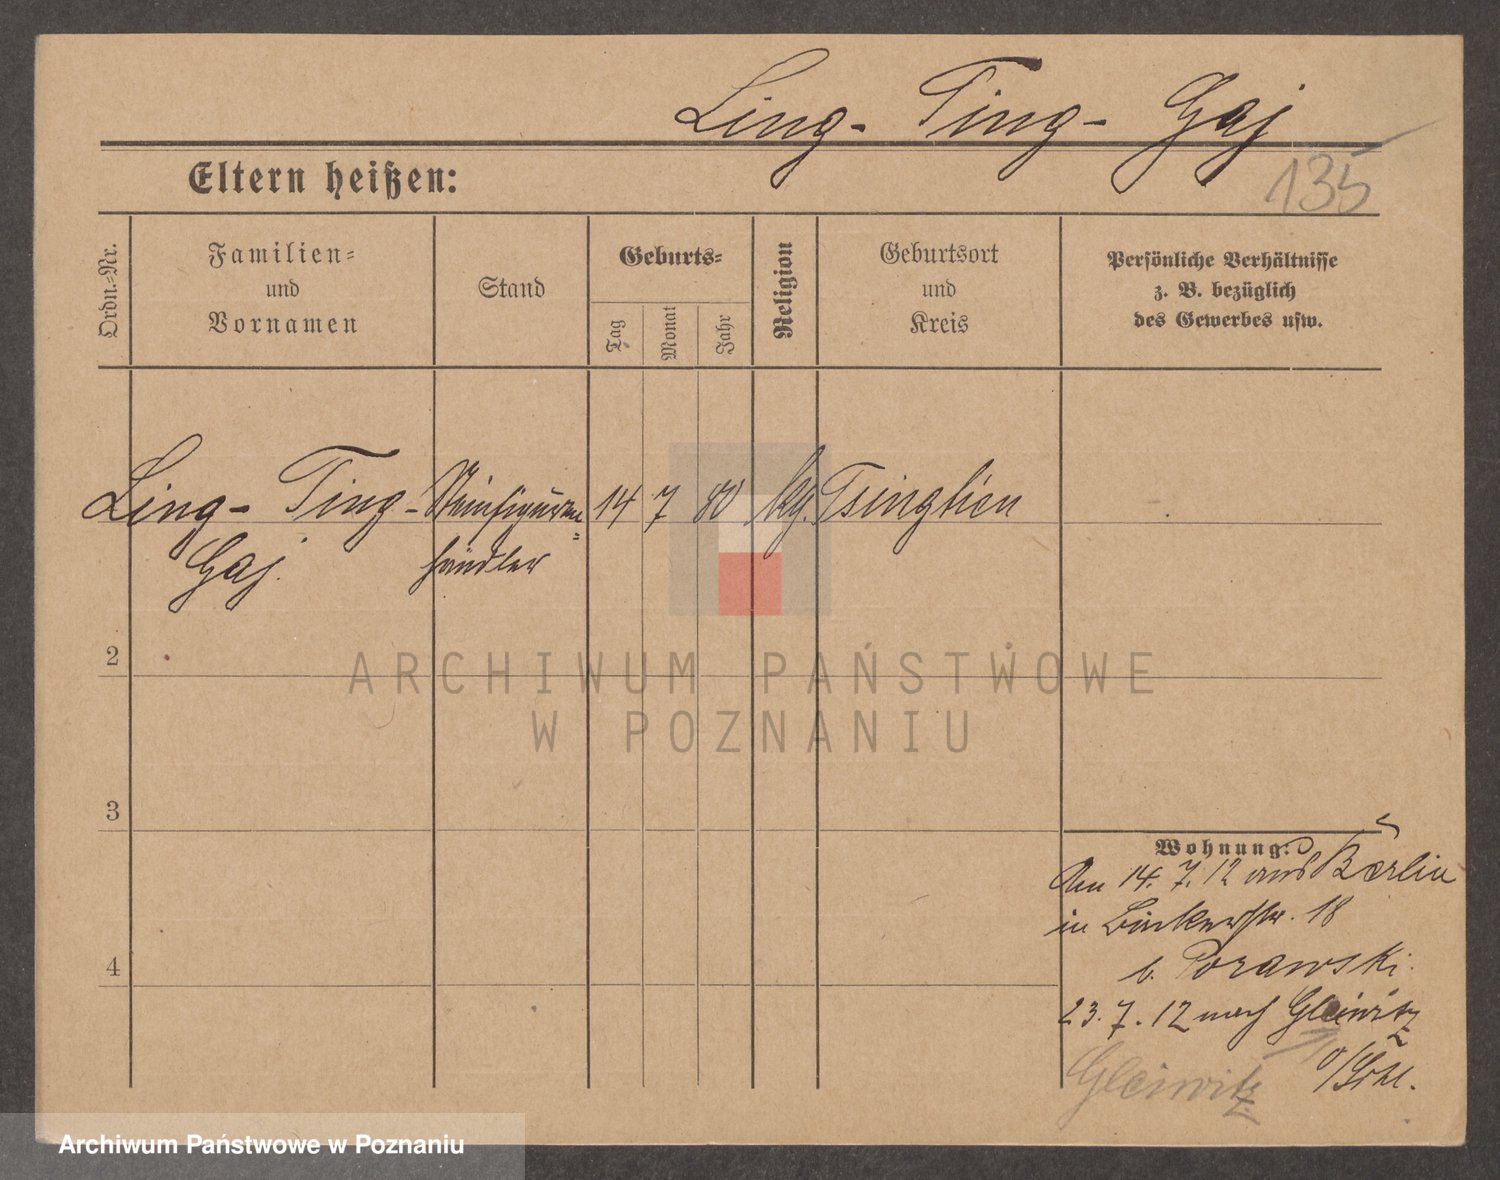 Ling- Ting- Gaj
135
Eltern heißen:
Ordn.-Nr.
Familien-
und
Vornamen
Stand
Geburts-
Tag
Monat
Jahr
Religion
Geburtsort
und
Kreis
Persönliche Verhältnisse
z. B. bezüglich
des Gewerbes usw.
Ling- Ting- Steinfiguren- 14 7 80 Tsingtien
Gaj. händler
2
3
4
ARCHIWUM PAŃSTWOWE
W POZNANIU
Wohnung:
Am 14. 7. 12 aus Berlin
in 18
b. Porawski.
23. 7. 12 nach Gleiwitz
o/Schl.
Gleiwitz
Archiwum Państwowe w Poznaniu